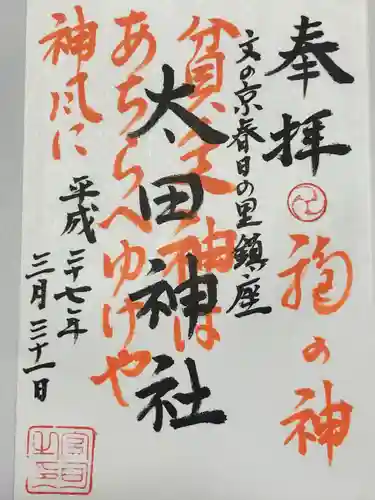 奉拝
福の神
文の京春日の里鎮座
太田神社
貧乏神は
あちらへゆけや
神風に
平成二十七年
三月三十一日